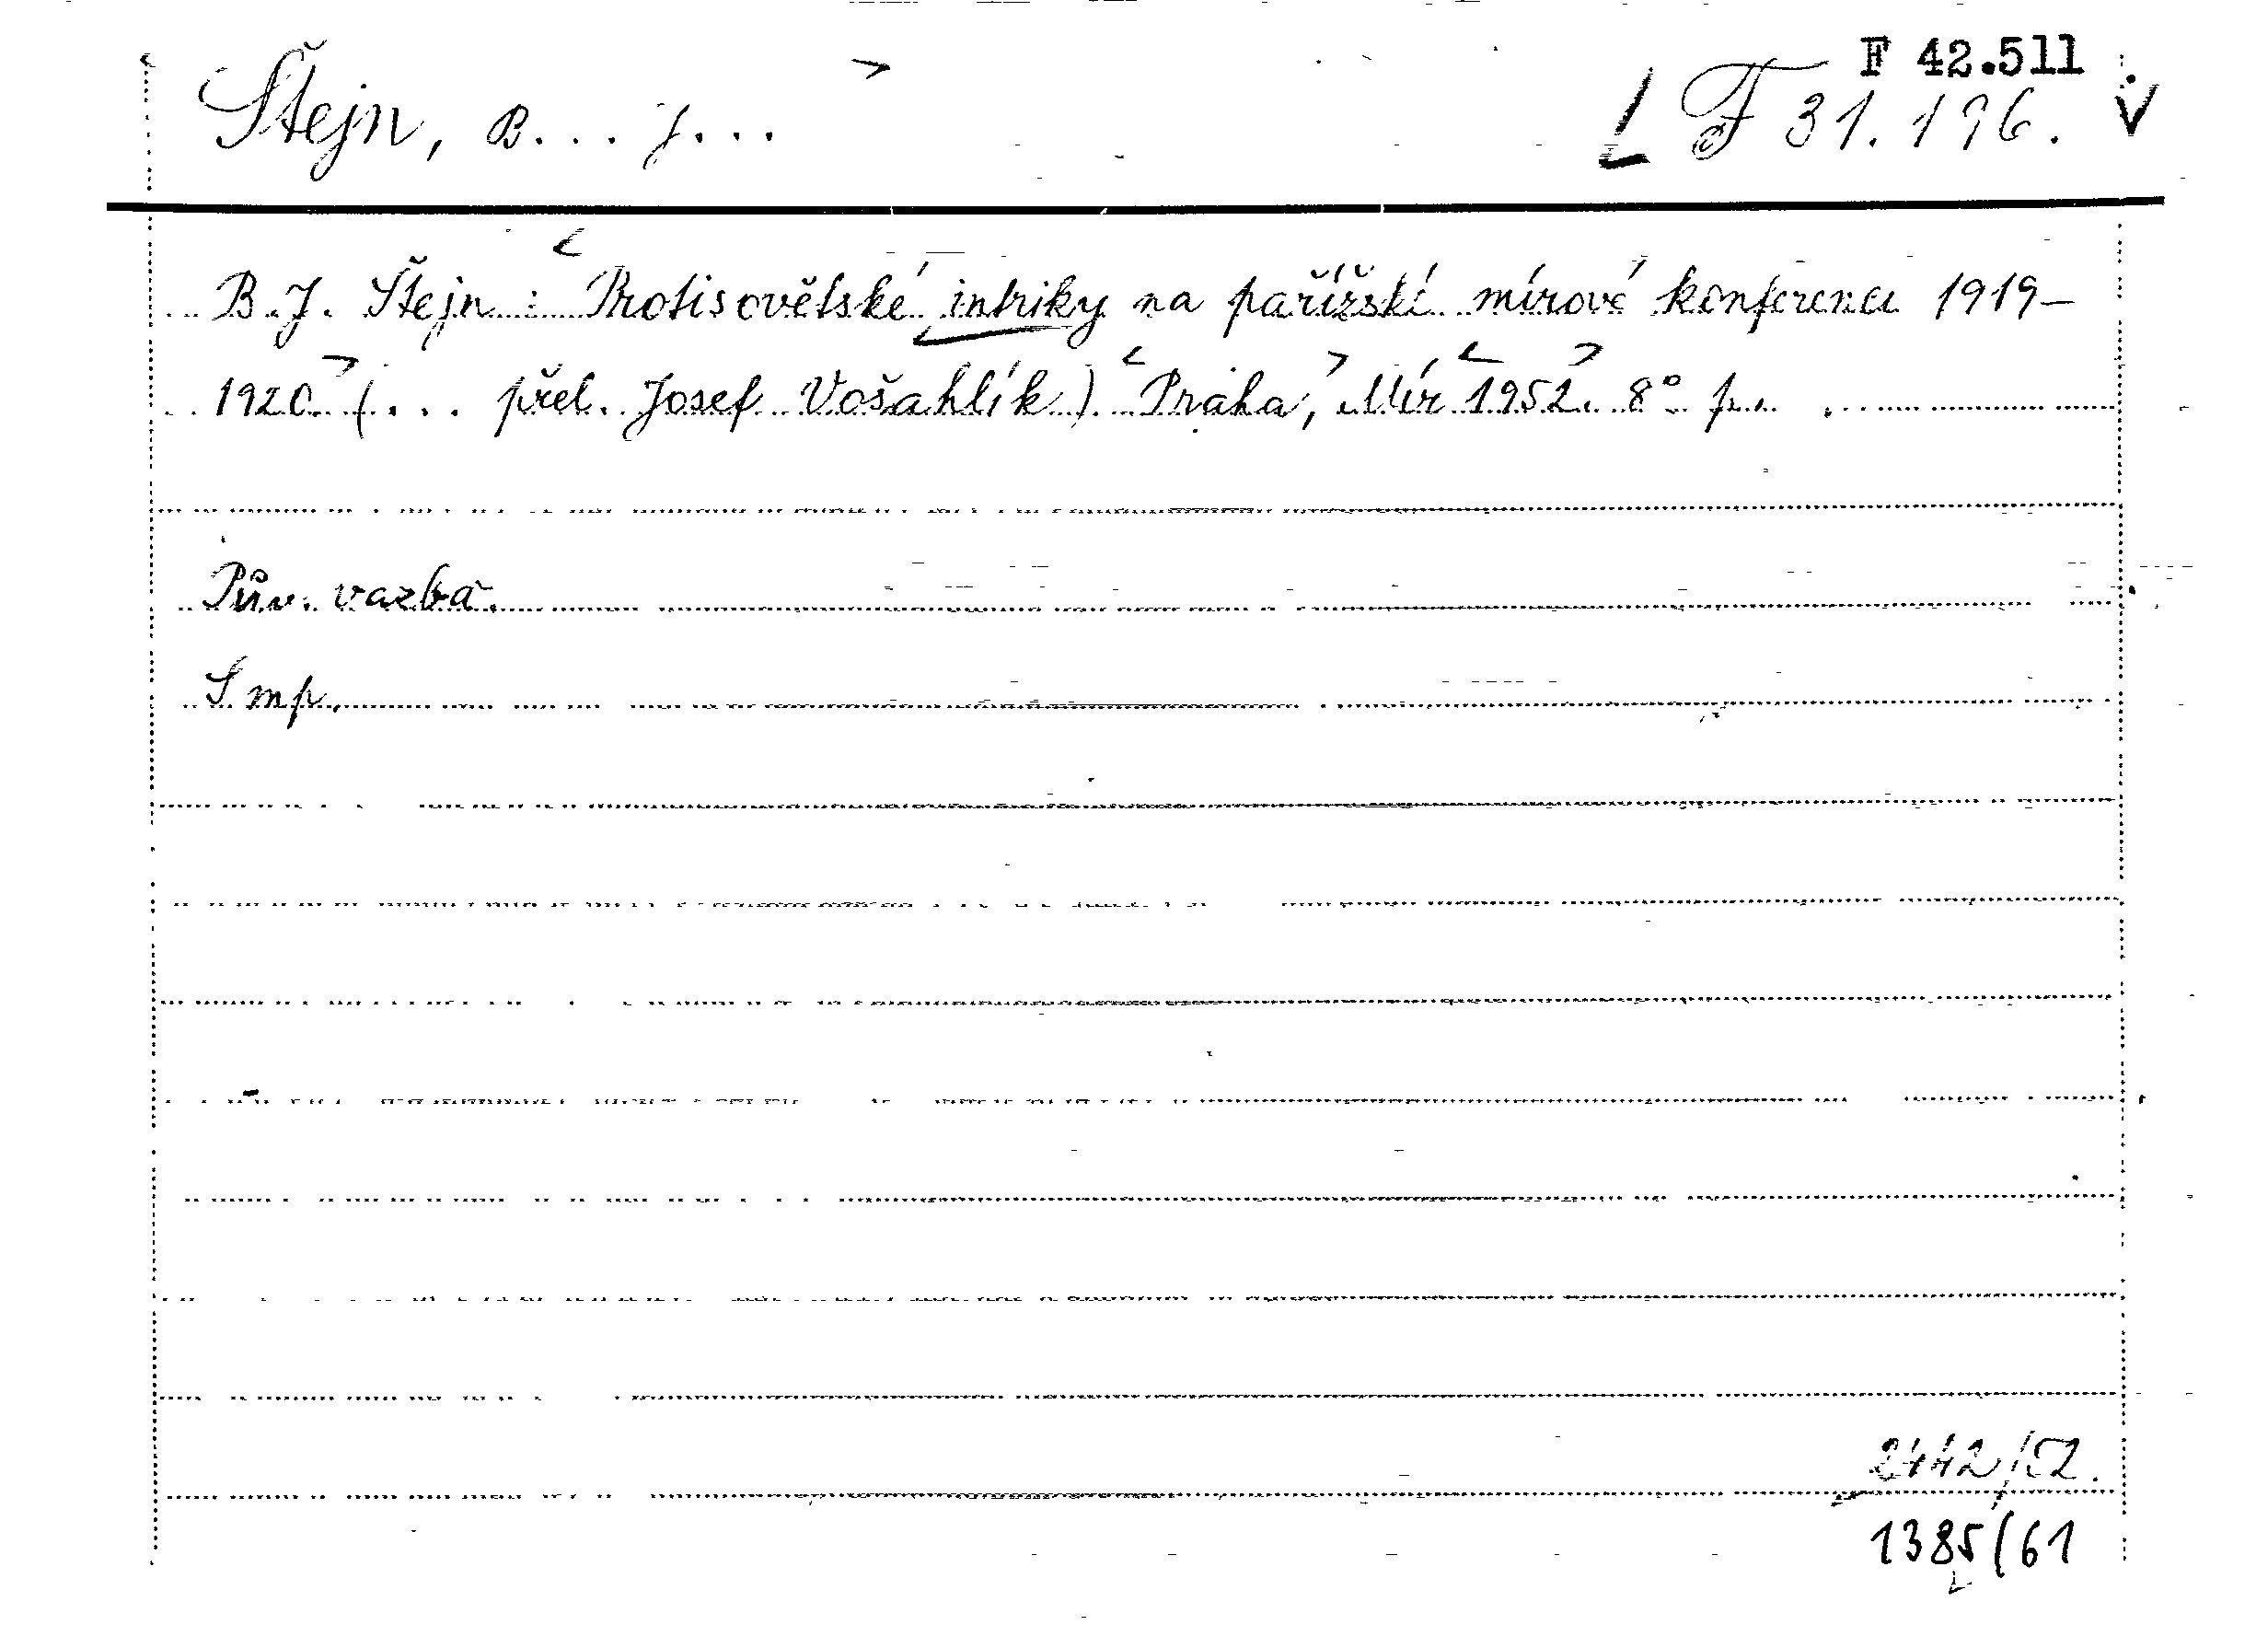 F 42.511
Štejn, B... J... F 31.196.
B.J. Štejn: Protisovětské intriky na pařížské mírové konferenci 1919-
1920 (... přel. Josef Vošahlík) Praha, Mír 1952. 8° p..
Pův. vazba.
S mp.
2442/52.
1385/61